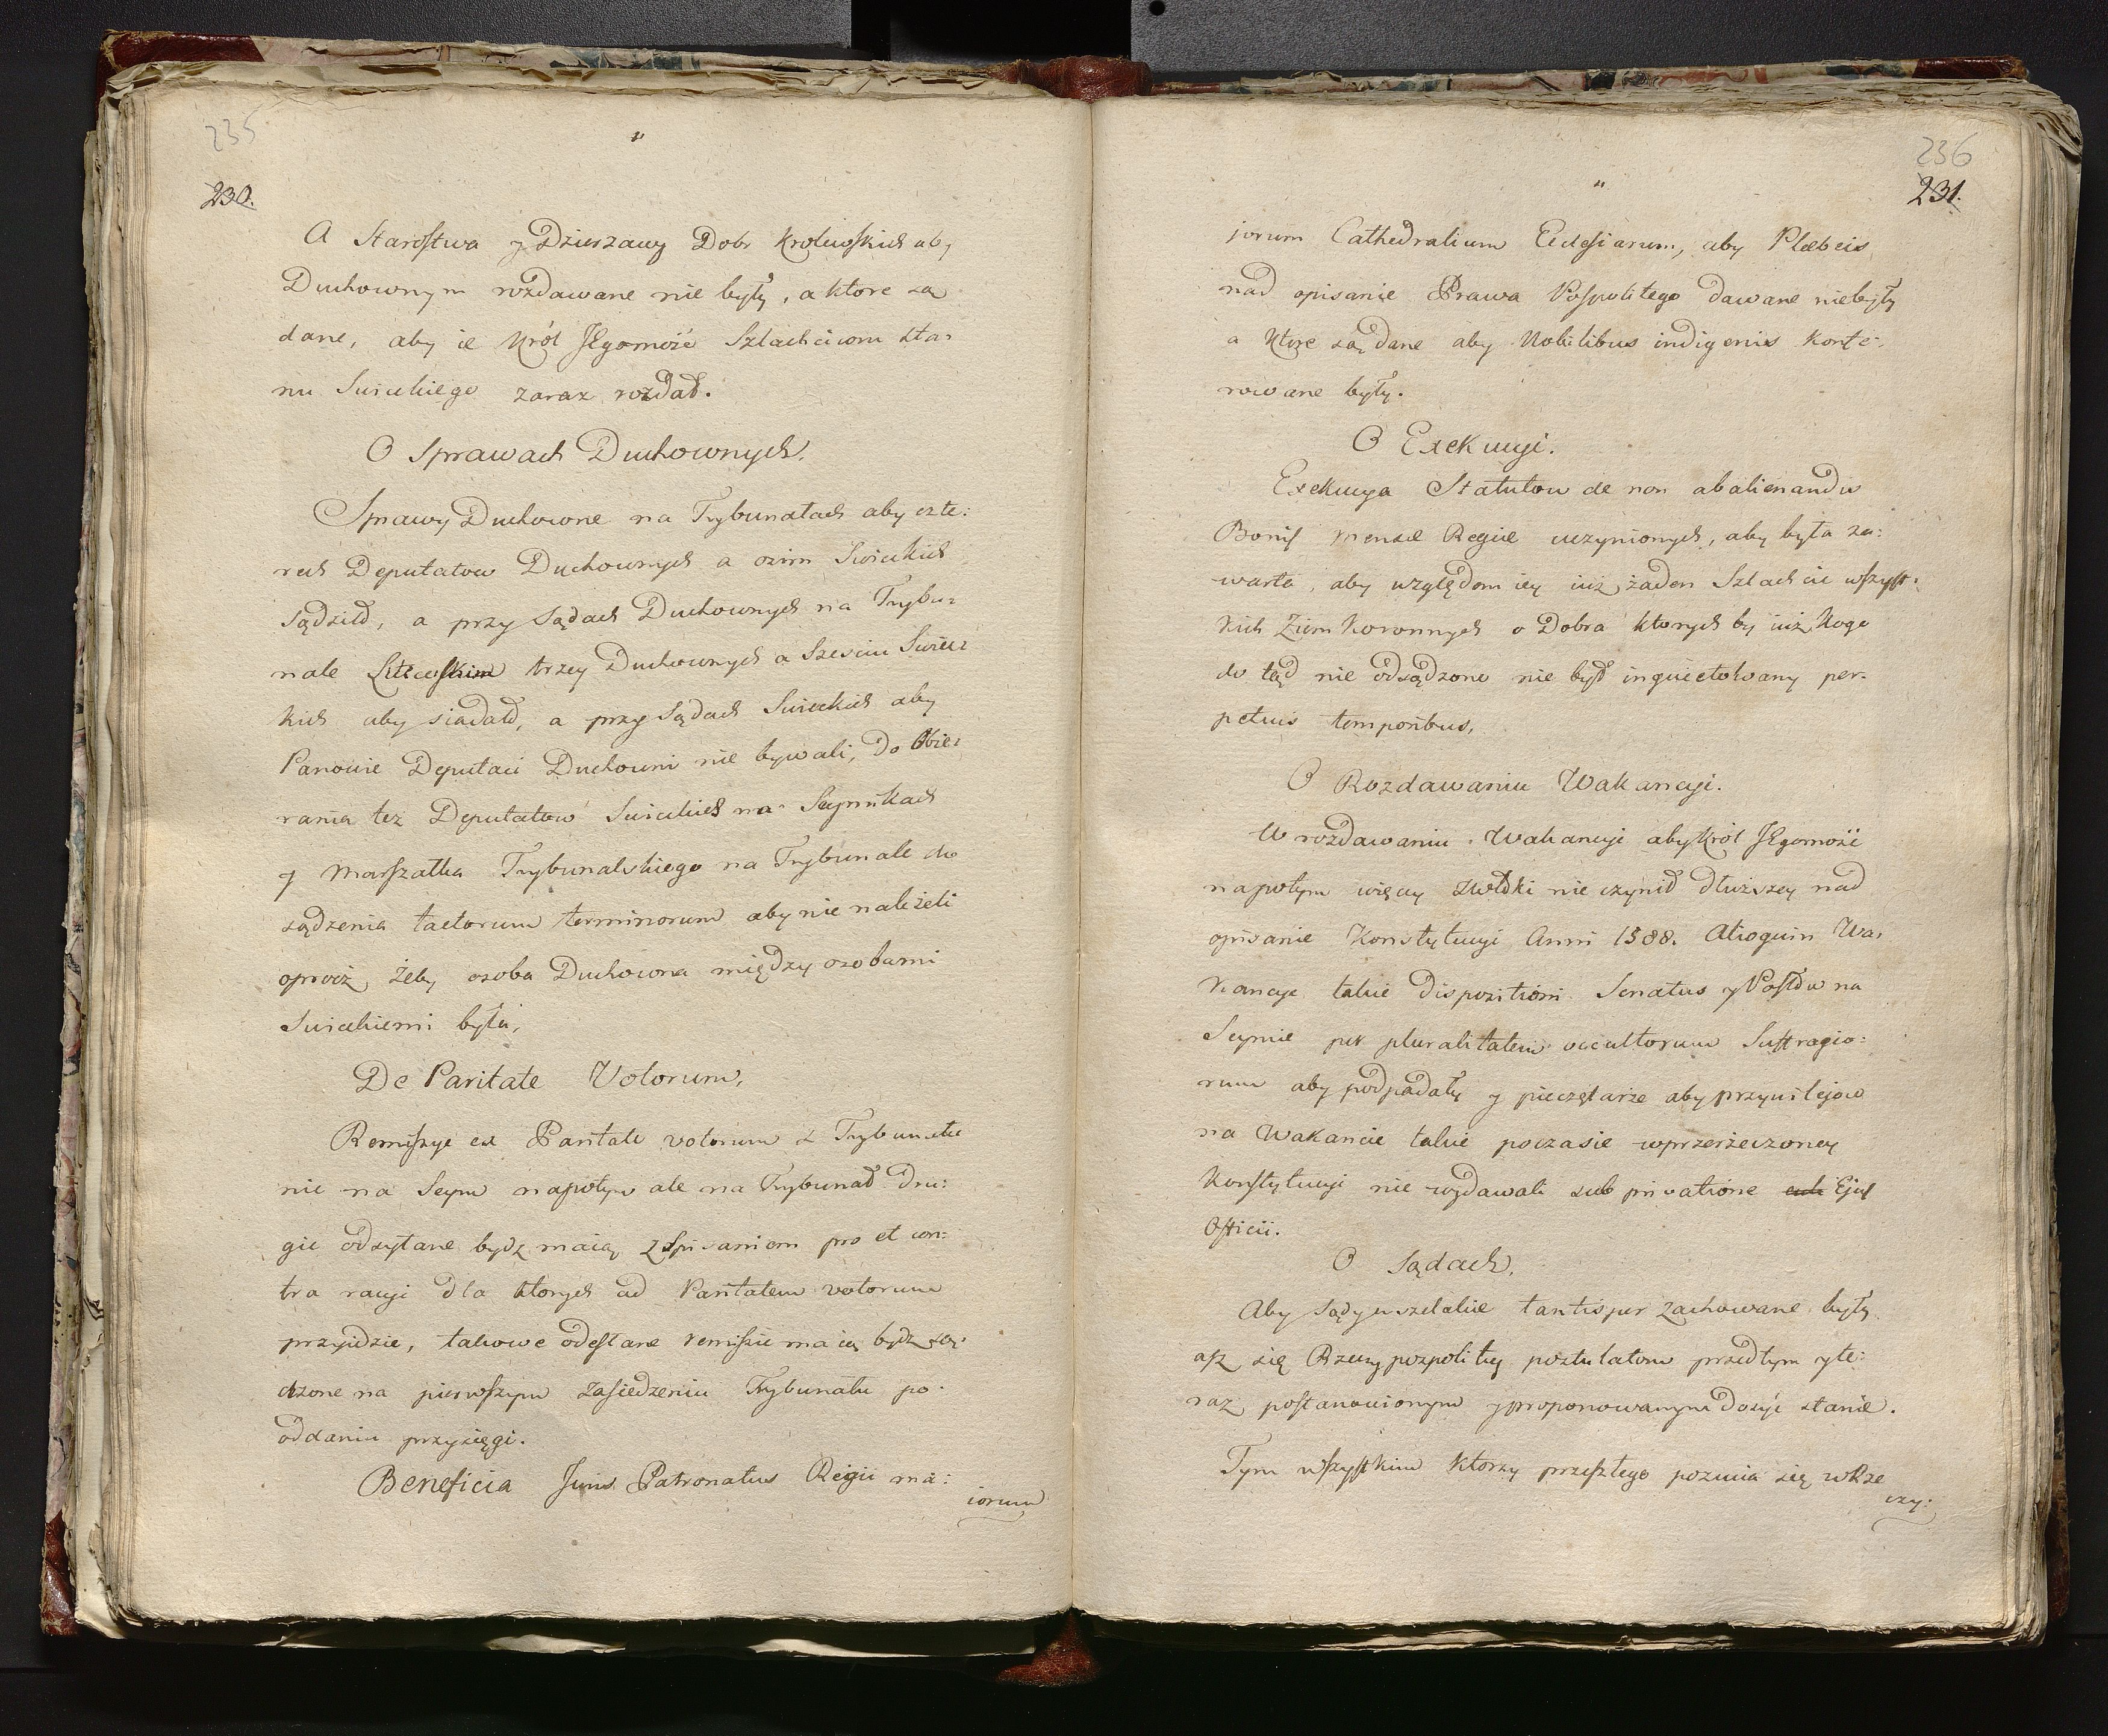 235
230.
A Starostwa y Dzierzawy Dobr Krolewskich aby
Duchownym rozdawane nie były, a ktore są
dane, aby ie Król JEgomość Szlachcicom sta:
nu Swieckiego zaraz rozdał.
O Sprawach Duchownych.
Sprawy Duchowne na Trybunałach aby czte:
rech Deputatow Duchownych a ośim Swieckich
sądził, a przy Sądach Duchownych na Trybu:
nale Litewskim trzey Duchownych a Szesciu Swiec:
kich aby siadało, a przy Sądach Swieckich aby
Panowie Deputaci Duchowni nie bywali, do Obie:
rania tez Deputatow Swieckich na Seymikach
y Marszałka Trybunalskiego na Trybunale do
sądzenia factorum terminorum aby nie należeli
oprocz żeby osoba Duchowna między osobami
Swieckiemi była,
De Paritate Votorum,
Remissye ex Paritate votorum z Trybunału
nie na Seym napotym ale na Trybunał dru:
gie odsyłane bydz maią z Spisaniem pro et con:
tra racyi dla ktorych ad Paritatem votorum
przyidzie, takowe odesłane remissie maią bydz są:
dzone na pierwszym Zasiedzeniu Trybunału po
oddaniu przysięgi.
Beneficia Juris Patronatus Regii ma:
iorum
236
231.
jorum Cathedralium Ecclesiarum, aby Plebeis
nad opisanie Prawa Pospolitego dawane niebyły
a Ktore są dane aby Nobilibus indigenis Konfe:
rowane były.
O Exekucyi.
Exekucya Statutow de non abalienandis
Bonis mensæ Regiæ uczynionych, aby była za:
warta, aby względem iey iuż żaden Szlachcic wszyst:
kich Ziem Koronnych o Dobra ktorych by iuż Kogo
do tąd nie odsądzono nie był inquietowany per:
petuis temporibus,
O Rozdawaniu Wakancyi.
W rozdawaniu Wakancyi aby Król JEgomość
napotym więcey zwłoki nie czynił dłuższey nad
opisanie Konstytucyi Anni 1588. Alioquin Wa:
kancye takie dispozitioni Senatus y Posłow na
Seymie per pluralitatem occultorum Suffragio:
rum aby podpadały y pieczętarze aby przywilejow
na Wakancie takie poczasie wprzerzeczoney
Konstytucyi nie wydawali sub privatione Ejus
Officii.
O Sądach.
Aby Sądy wszelakie tantisper zachowane były
asz się Rzeczypospolitey postulatom przedtym y te:
raz postanowionym y proponowanym dosyć stanie.
Tym wszystkim Ktorzy przeszłego poznia się w Rze
czy: